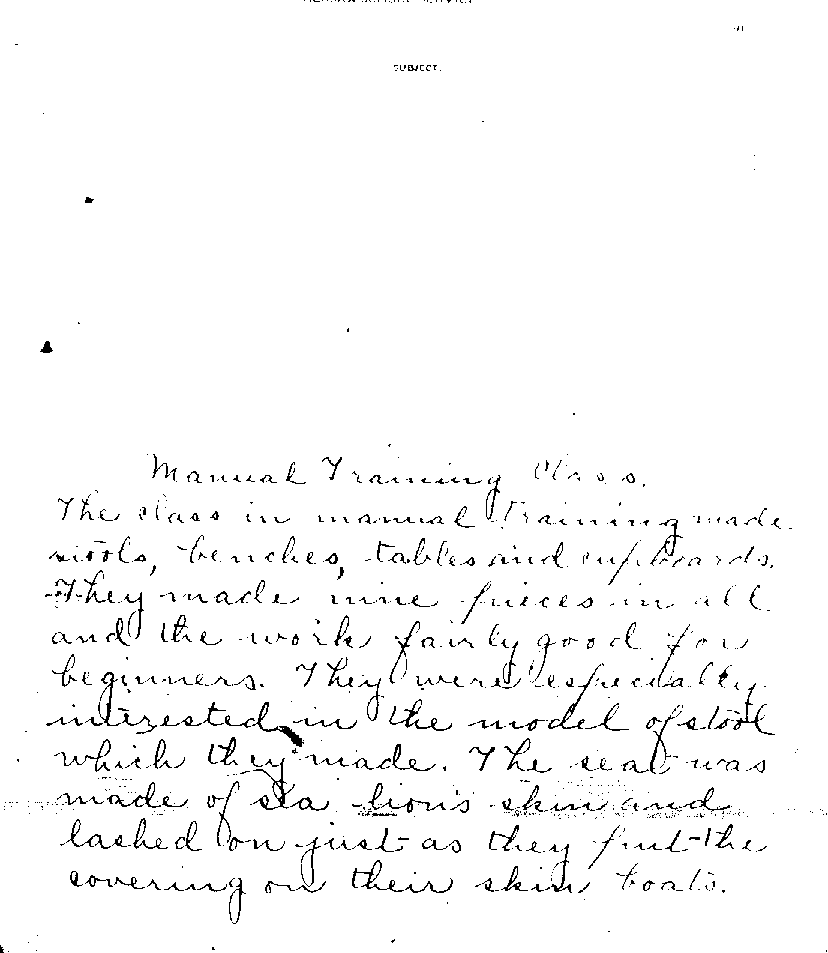 SUBJECT.
Manual Training Class.
The class in manual training made
stools, benches, tables and cupboards.
They made nine pieces in all
and the work fairly good for
beginners. They were especially
interested in the model of stool
which they made. The seat was
made of sea lion's skin and
lashed on just as they put the
covering on their skin boats.